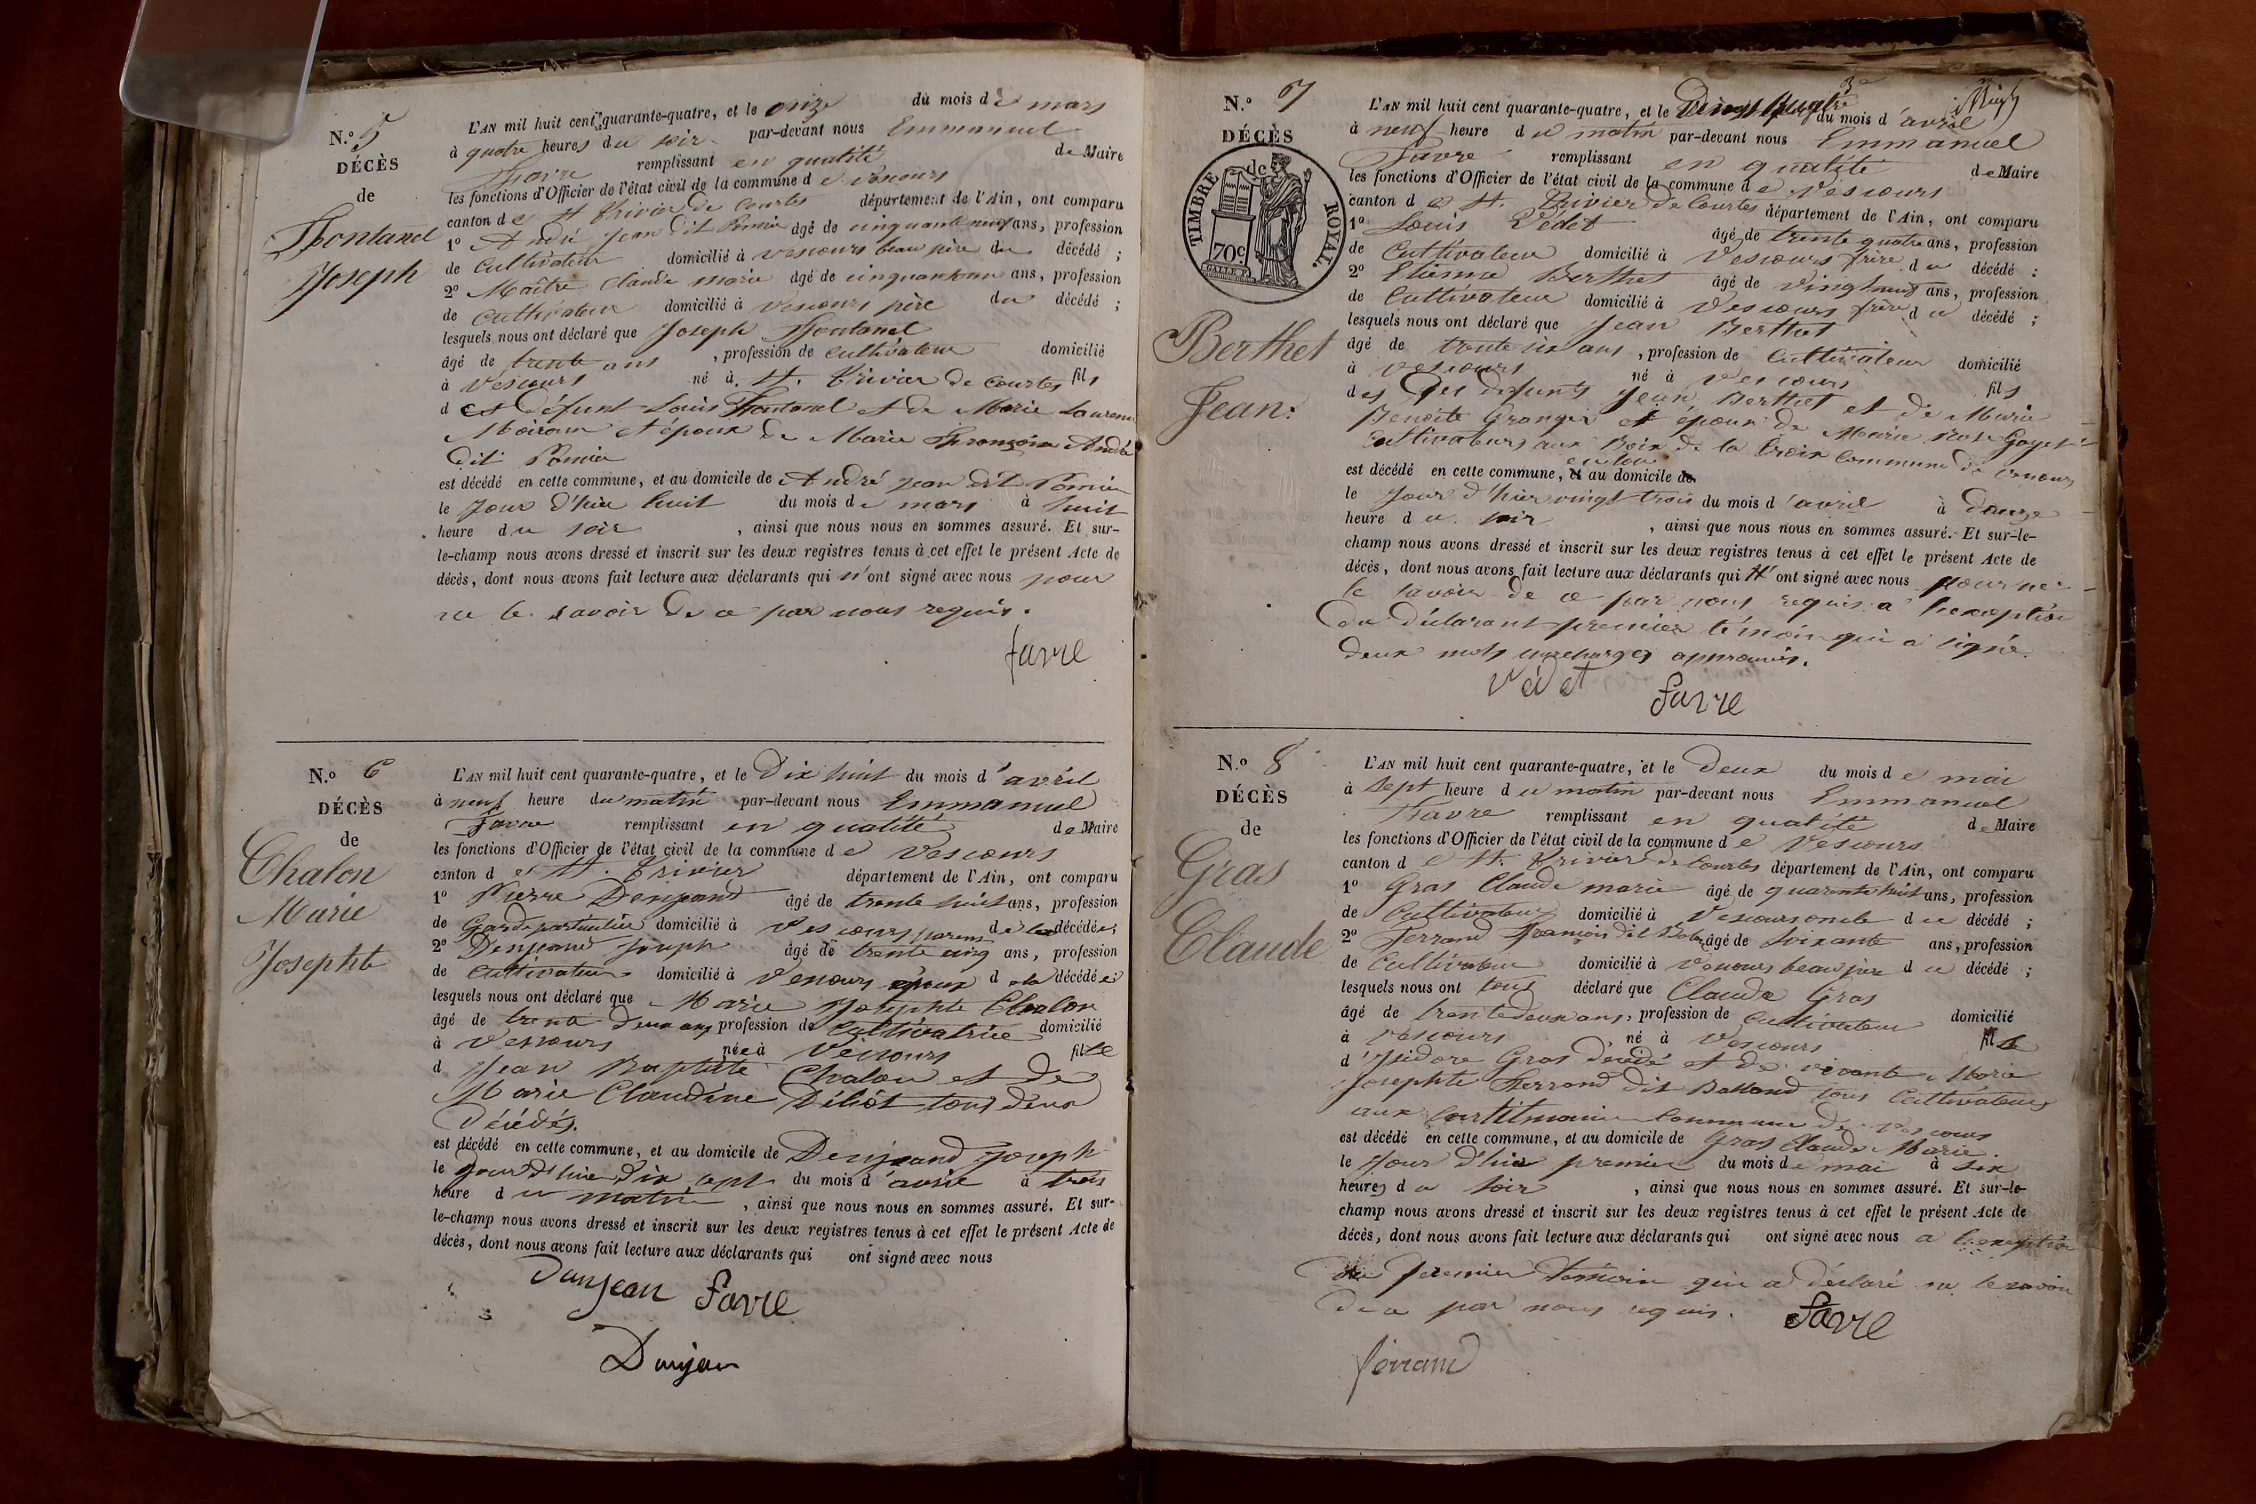 N.o 5
DÉCÈS
de
Fontanel
Joseph
L'AN mil huit cent quarante-quatre, et le onze du mois de mars
à quatre heures du soir par-devant nous Emmanuel
Favre remplissant en qualité de Maire
les fonctions d'Officier de l'état civil de la commune de Vescours
canton de St. Trivier de Courtes département de l'Ain, ont comparu
1o André Jean dit Pomier âgé de cinquante neuf ans, profession
de Cultivateur domicilié à Vescours beau père du décédé ;
2o Maître Claude marie âgé de ans, profession
de Cultivateur domicilié à Vescours père du décédé ;
lesquels nous ont déclaré que Joseph Fontanel
âgé de trente ans , profession de Cultivateur domicilié
à Vescours né à St. Trivier de Courtes fils
d défunt Louis Fontanel et de Marie Laurence
et époux de Marie Françoise André
dit Pomier
est décédé en cette commune, et au domicile de André Jean dit Pomier
le Jour d'hier huit du mois de mars à huit
heure du soir , ainsi que nous nous en sommes assuré. Et sur-
le-champ nous avons dressé et inscrit sur les deux registres tenus à cet effet le présent Acte de
décès, dont nous avons fait lecture aux déclarants qui n'ont signé avec nous pour
ne le savoir de ce par nous requis.
favre
N.o 6
DÉCÈS
de
Chalon
Marie
Josephte
L'AN mil huit cent quarante-quatre, et le Dix huit du mois d'avril
à neuf heure du matin par-devant nous Emmanuel
Favre remplissant en qualité de Maire
les fonctions d'Officier de l'état civil de la commune de Vescours
canton de St. Trivier département de l'Ain, ont comparu
1o Pierre Denjeand âgé de trente huit ans, profession
de Garde particulier domicilié à Vescours parent de la décédée ;
2o Denjeand Joseph âgé de trente cinq ans, profession
de Cultivateur domicilié à Vescours époux d la décédée ;
lesquels nous ont déclaré que Marie Josephte Chalon
âgé de trente deux ans profession de Cultivatrice domicilié
à Vescours née à Vescours fille
d Jean Baptiste Chalon et de
Marie Claudine Débôt tous deux
Décédés.
est décédé en cette commune, et au domicile de Denjeand Joseph
le jour d'hier dix sept du mois d'avril à trois
heure du matin , ainsi que nous nous en sommes assuré. Et sur-
le-champ nous avons dressé et inscrit sur les deux registres tenus à cet effet le présent Acte de
décès, dont nous avons fait lecture aux déclarants qui ont signé avec nous
Danjean Favre
Danjean
N.o 7
DÉCÈS
de
TIMBRE ROYAL.
70c
Berthet
Jean:
L'AN mil huit cent quarante-quatre, et le vingt quatre du mois d'avril
à neuf heure du matin par-devant nous Emmanuel
Favre remplissant en qualité de Maire
les fonctions d'Officier de l'état civil de la commune de Vescours
canton de St. Trivier de Courtes département de l'Ain, ont comparu
1o Louis Védet âgé de trente quatre ans, profession
de Cultivateur domicilié à Vescours frère du décédé ;
2o Etienne Berthet âgé de vingt neuf ans, profession
de Cultivateur domicilié à Vescours frère du décédé ;
lesquels nous ont déclaré que Jean Berthet
âgé de trente six ans , profession de Cultivateur domicilié
à Vescours né à Vescours fils
des défunts Jean Berthet et de Marie
Benoite Granger et époux de Marie Rose Goyet
Cultivateurs aux Bois de la Croix Commune de Vescours
est décédé en cette commune, et au domicile de
le Jour d'hier vingt trois du mois d'avril à Douze
heure du soir , ainsi que nous nous en sommes assuré. Et sur-le-
champ nous avons dressé et inscrit sur les deux registres tenus à cet effet le présent Acte de
décès, dont nous avons fait lecture aux déclarants qui n'ont signé avec nous pour ne
le savoir de ce par nous requis a l'exception
du déclarant premier témoin qui a signé.
Deux mots surchargés approuvés.
Védet Favre
N.o 8
DÉCÈS
de
Gras
Claude
L'AN mil huit cent quarante-quatre, et le Deux du mois de mai
à sept heure du matin par-devant nous Emmanuel
Favre remplissant en qualité de Maire
les fonctions d'Officier de l'état civil de la commune de Vescours
canton de St. Trivier de Courtes département de l'Ain, ont comparu
1o Gras Claude marie âgé de quarante huit ans, profession
de Cultivateur domicilié à Vescours oncle du décédé ;
2o Ferrand François dit âgé de soixante ans, profession
de Cultivateur domicilié à Vescours beau père du décédé ;
lesquels nous ont tous déclaré que Claude Gras
âgé de trente deux ans, profession de Cultivateur domicilié
à Vescours né à Vescours fils
d'Isidore Gras décédé et de vivante Marie
Josephte Ferrand dit Balland tous Cultivateurs
aux commune de Vescours
est décédé en cette commune, et au domicile de Gras Claude Marie
le Jour d'hier premier du mois de mai à six
heures du soir , ainsi que nous nous en sommes assuré. Et sur-le-
champ nous avons dressé et inscrit sur les deux registres tenus à cet effet le présent Acte de
décès, dont nous avons fait lecture aux déclarants qui ont signé avec nous a l'exception
du premier témoin qui a déclaré ne le savoir
de ce par nous requis. Favre
ferrand